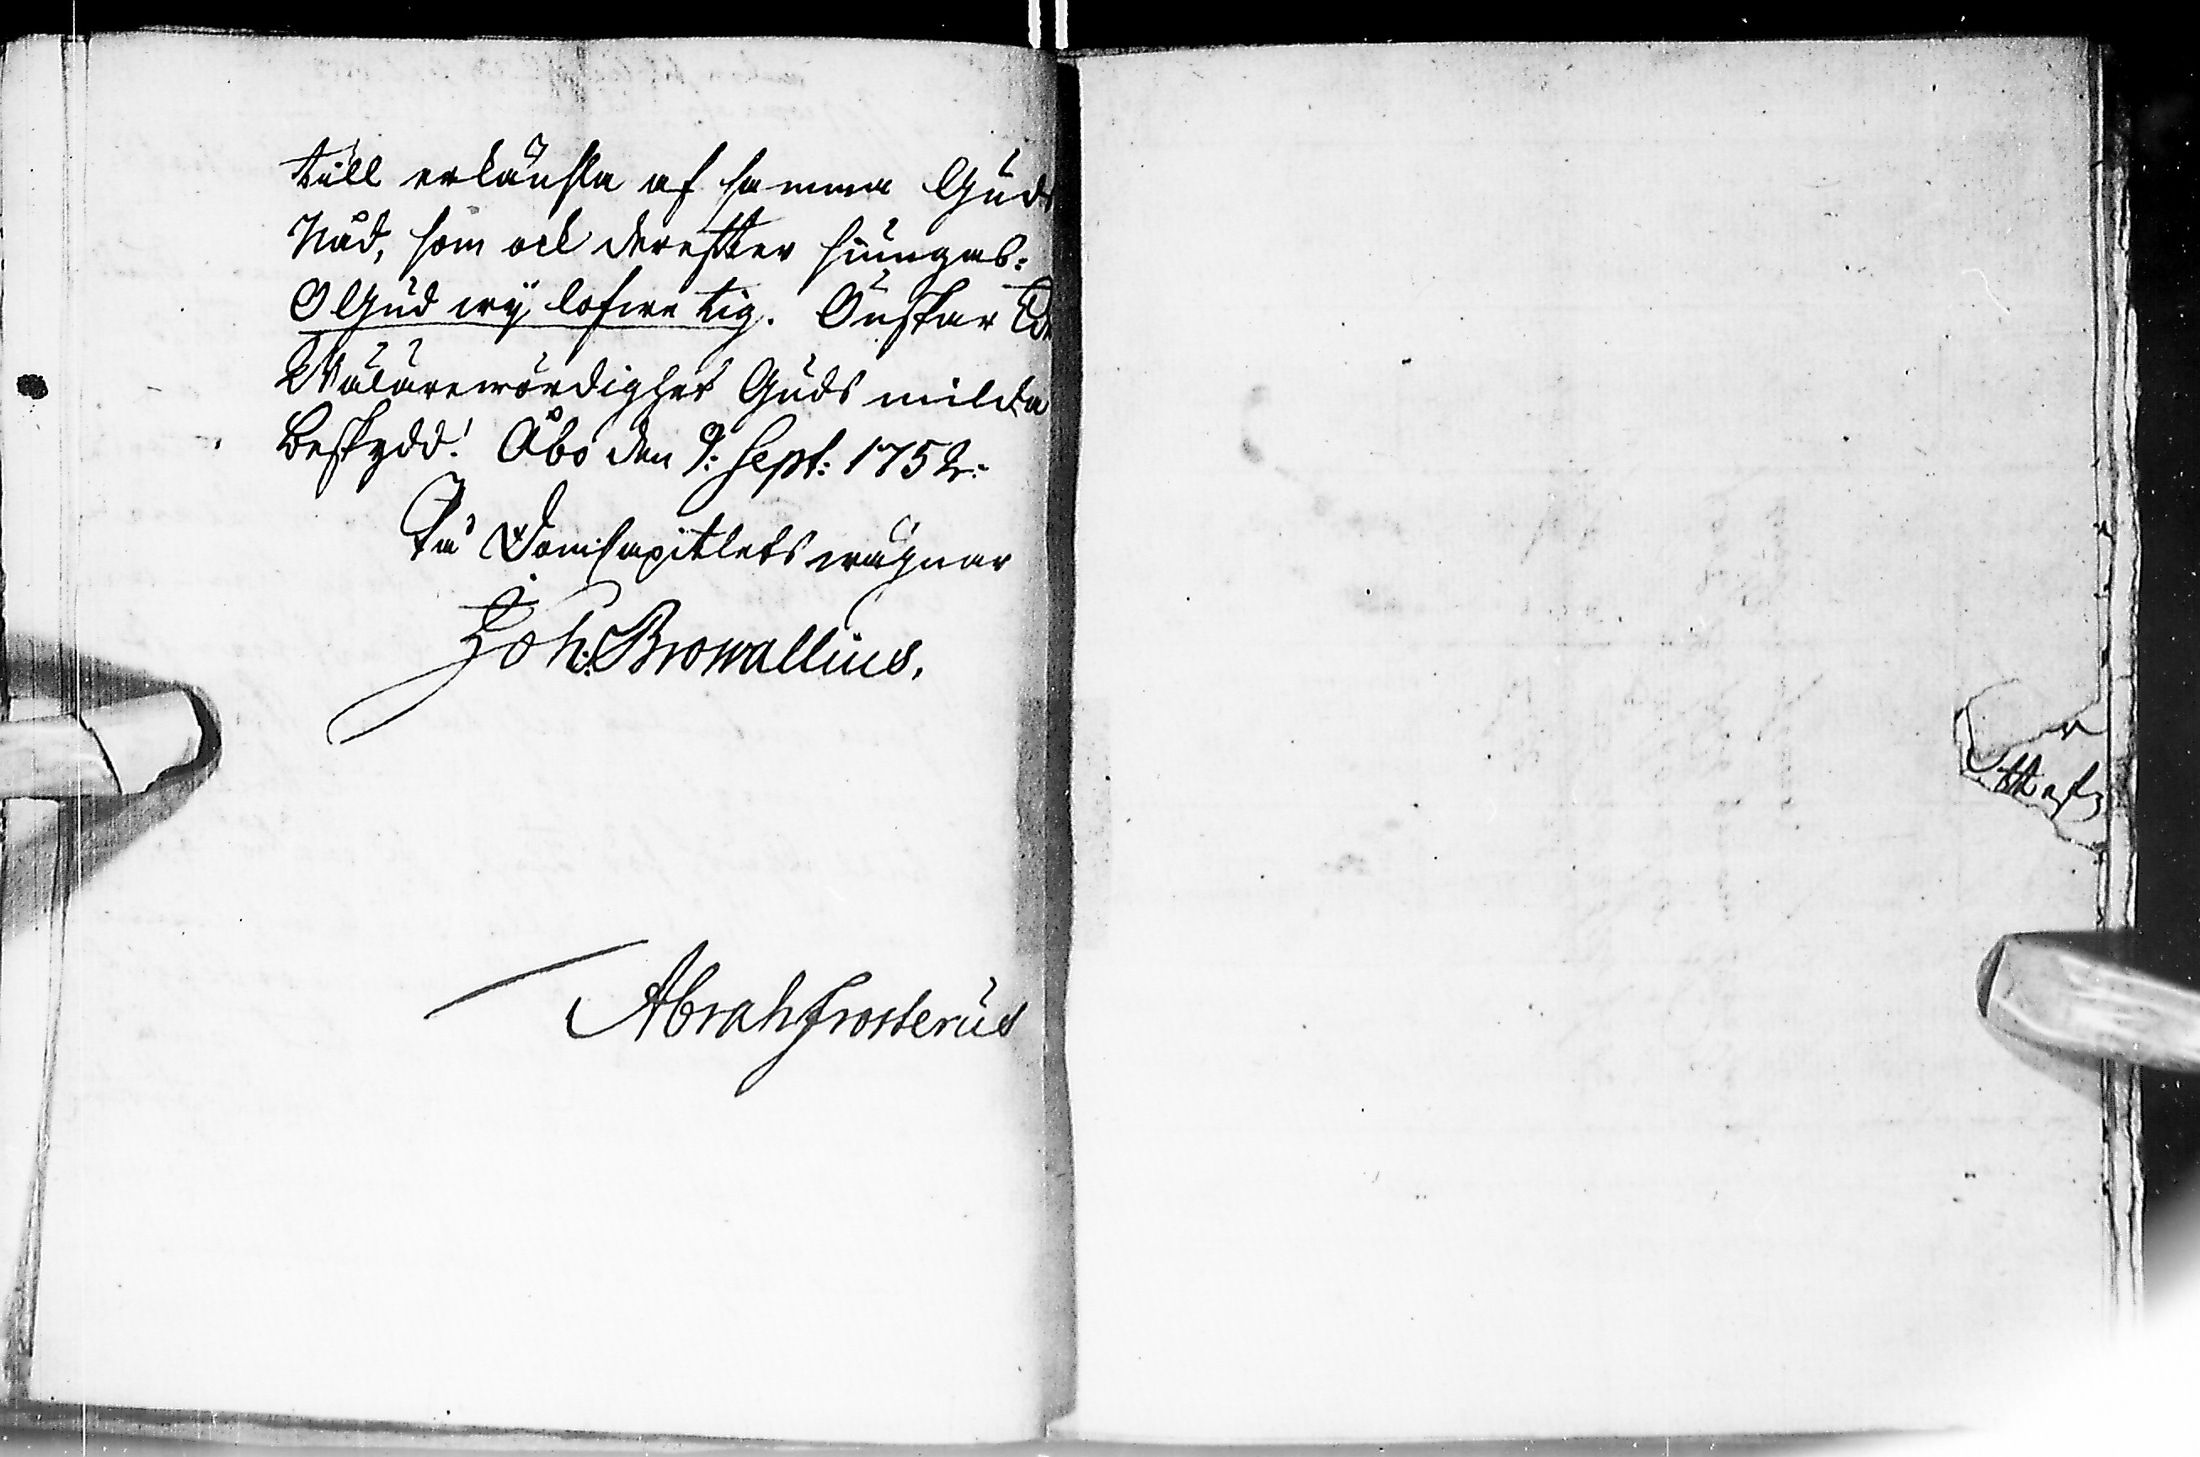 till erkänsla af samma Guds
Nåd, som ock derefter siunges:
O Gud wÿ lofwe tig. Önskar Ed.
Wälärewördighet Guds milda
beskydd! Åbo den 9: Sept: 1752:
På DomCapitlets wägnar
Joh: Browallius.
Abrah Frosterus